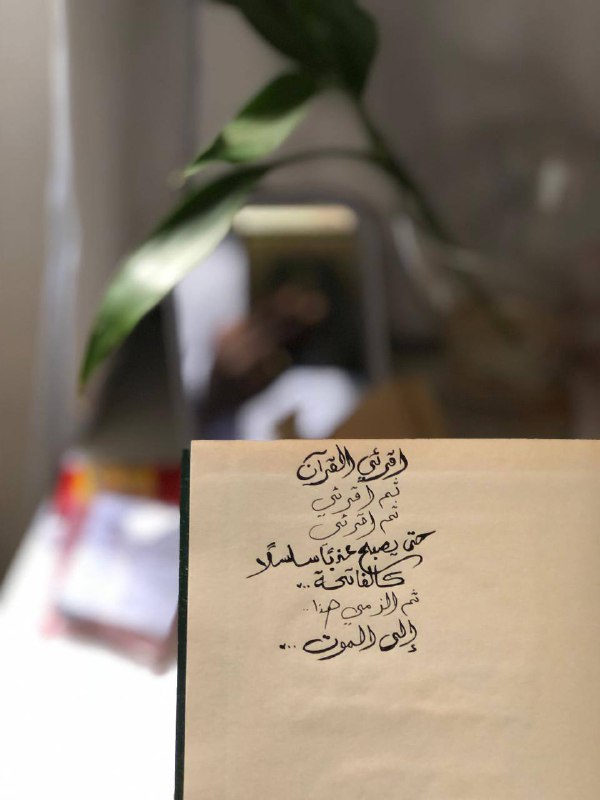 اقرئي القرآن
ثم اقرئي
ثم اقرئي
حتى يصبح عذبًا سلسلًا
كالفاتحة...
ثم الزمي هذا..
إلى الموت...